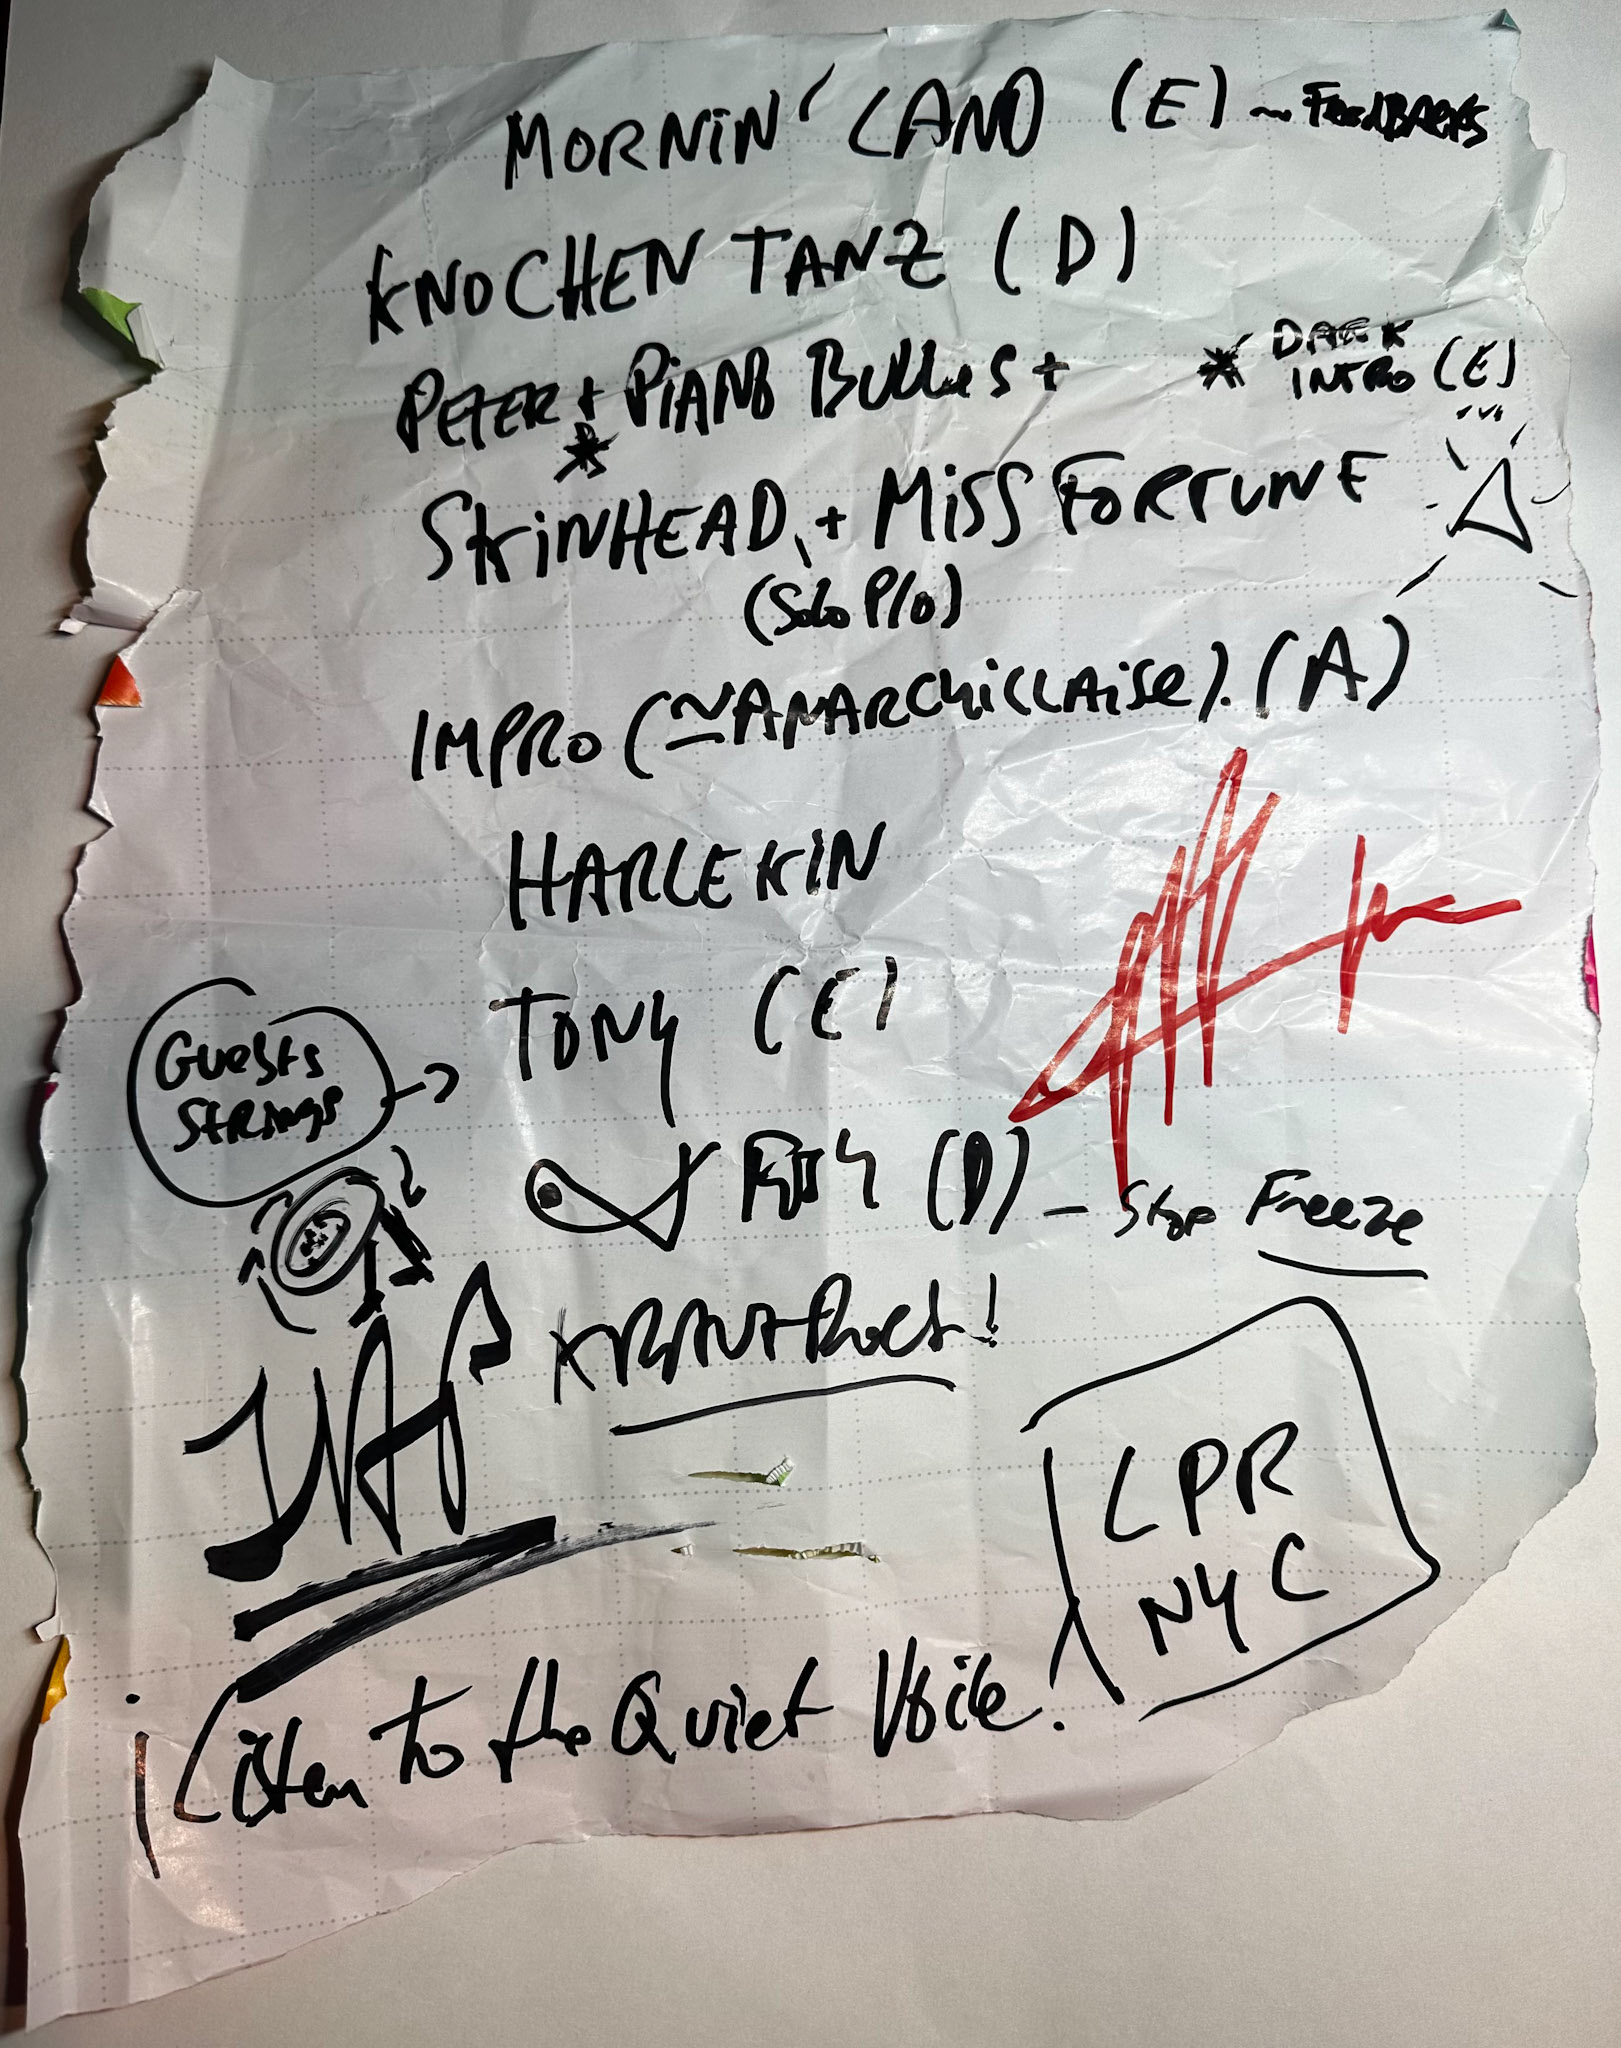 MORNIN' LAND (E) ~ FEEDBACKS
KNOCHEN TANZ (D)
PETER + PIANO BULLES +
*
* DARK INTRO (E)
SKINHEAD, + MISS FORTUNE
(Solo P/O)
IMPRO (≃ ANARCHILLAISE). (A)
HARLEKIN
Guests
Strings →
TONY (E)
(D) - Stop Freeze
KRAUTROCK!
LPR
NYC
¡Listen to the Quiet Voice.